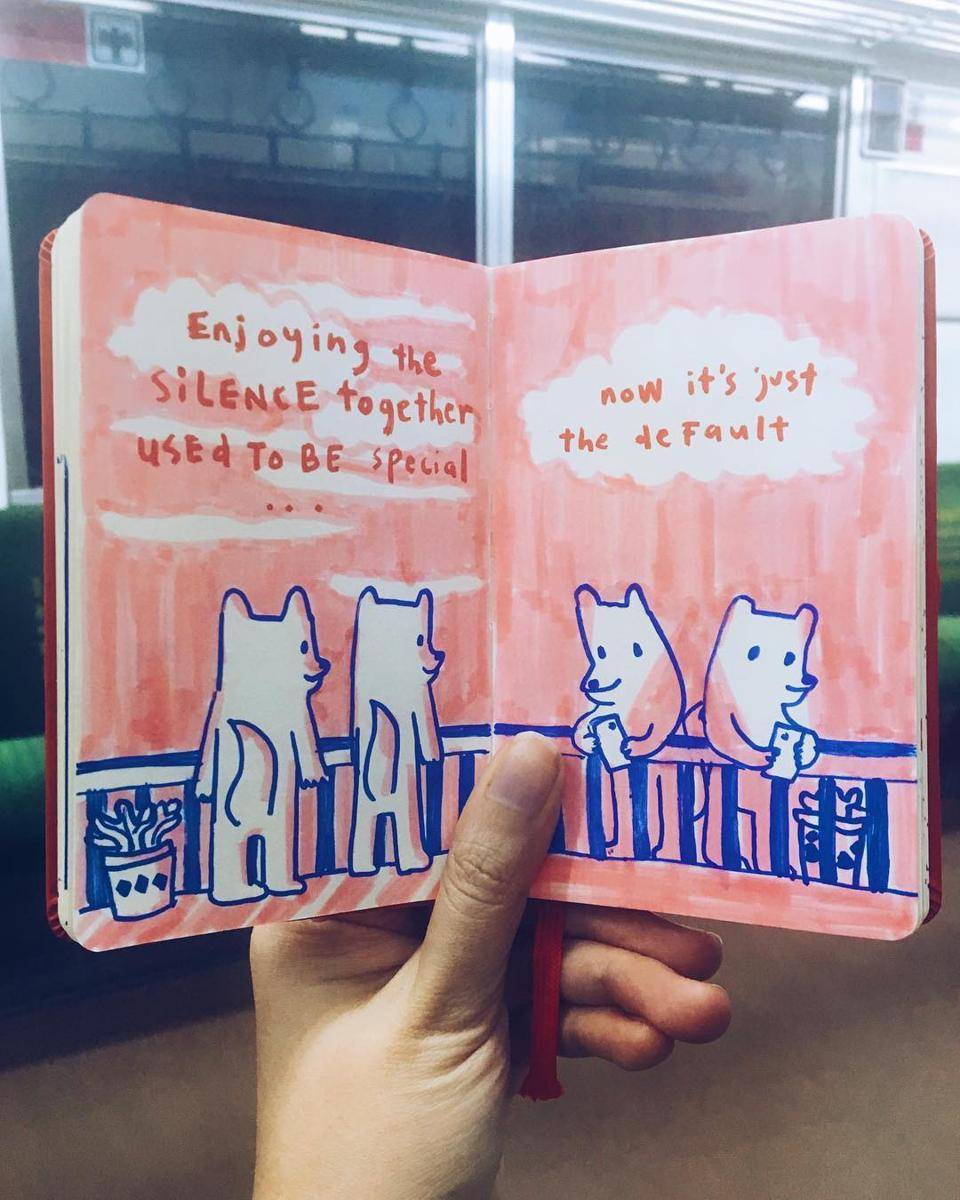 Enjoying the
SiLENCE together
USEd To BE special
...
now it's just
the deFault